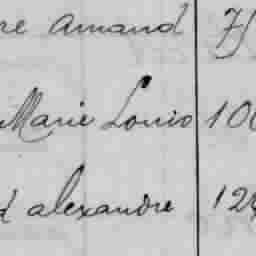 re Amand 75
Marie Louis 100
d alexandre 124